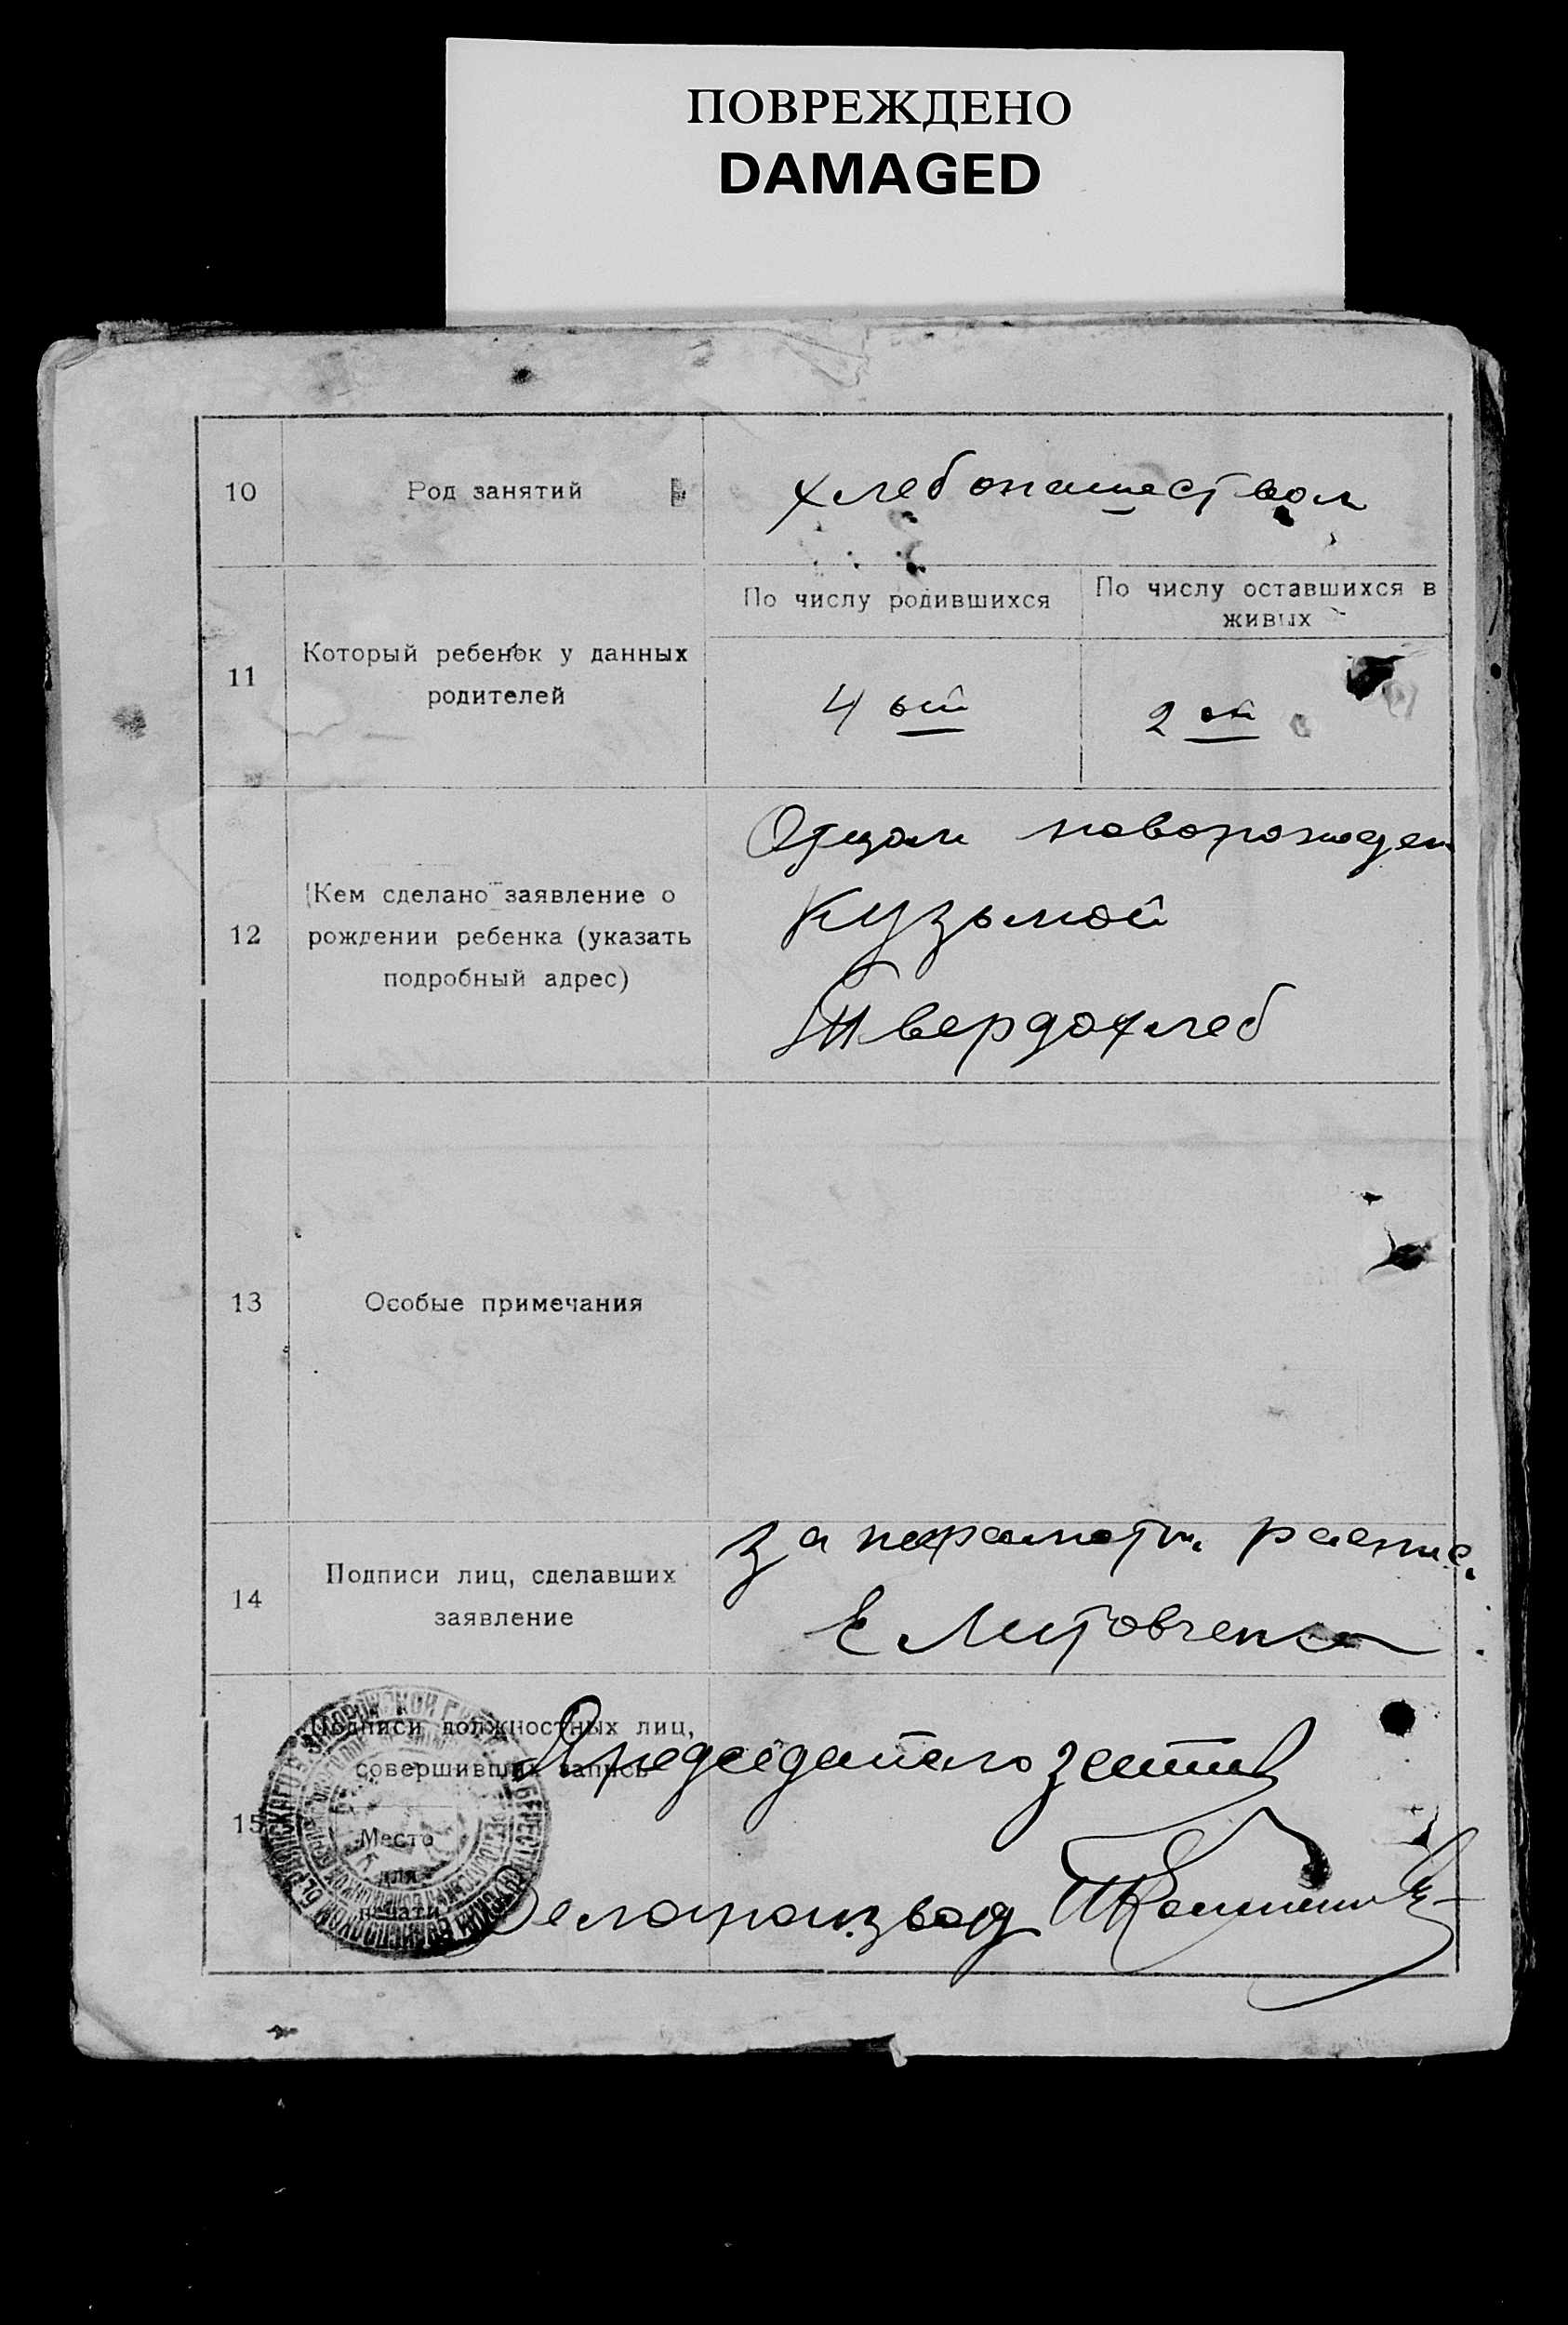 ПОВРЕЖДЕНО
DAMAGED
10
Род занятий
хлебопашеством
11
Который ребенок у данных
родителей
По числу родившихся
По числу оставшихся в
живых
4 ый
2 ой
12
Кем сделано заявление о
рождении ребенка (указать
подробный адрес)
Отцом новорожден
Кузьмой
Твердохлеб
13
Особые примечания
14
Подписи лиц, сделавших
заявление
за неграмотн. распис.
Е Литовченко
15
Подписи должностных лиц,
совершивших запись
Место
для
печати
Председатель
Делопроизвод